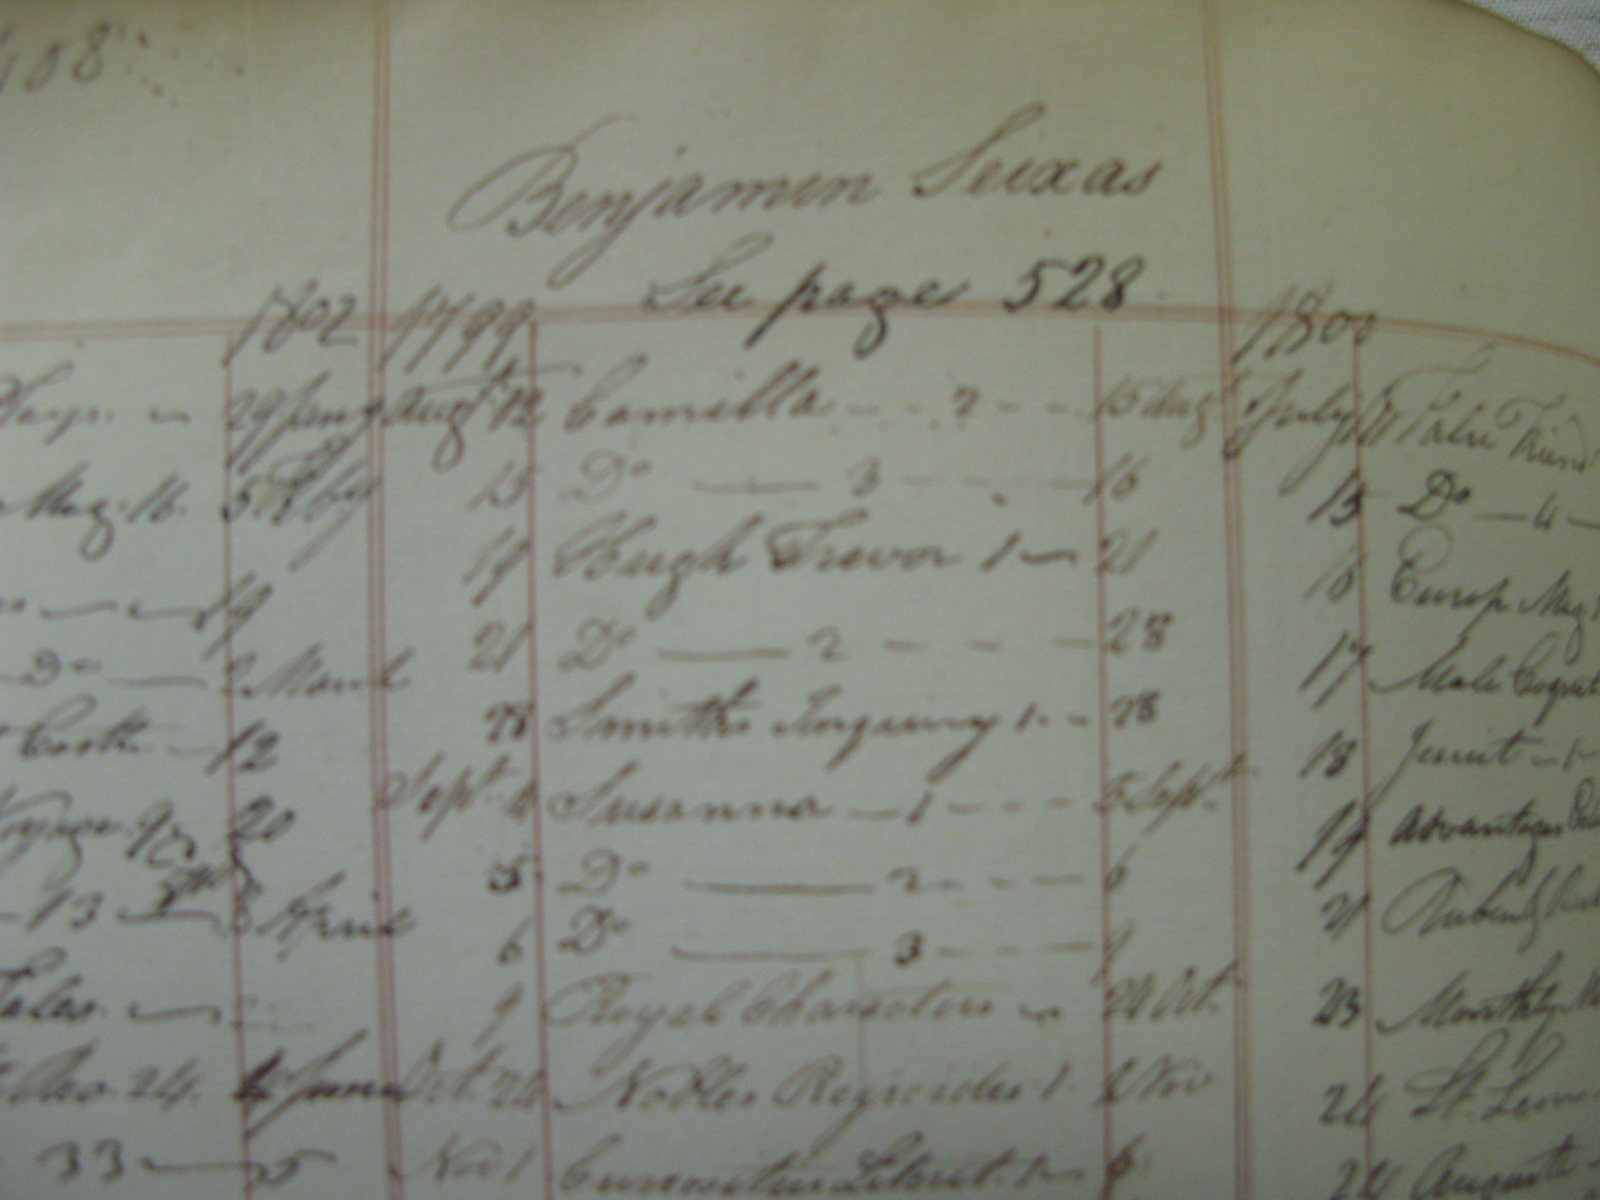 408
Benjamin Seixas
See page 528
1802 1799 1800
29 Jany Augt 12 Camilla - - 2 - - 15 Augt July 11 False Friend
Mag. 16. 5 Feby 15 Do — 3 - - - 16 15 Do — 4 —
19 19 Hugh Trevor 1 — 21 16 Europ Mag
Do — 2 March 21 Do — 2 - - - 28 17 Male Coquet
Castle — 12 28 Smith's Inquiry 1 - - 28 18 Jesuit — 1 —
20 Sept 4 Susanna — 1 - - - 5 Sept 19 Advantages
13 — 3 April 5 Do — 2 - - - 6 21
6 Do — 3 - - - 9
Tales — 9 Royal Characters — 24 Oct. 23 Monthly
24. 4 June Oct 24 Nobles Regicides 1. 1 Nov 24 St. Leon
33 — 5 Nov 1 Curiosities Literat. 1 — 6 24 Augusta